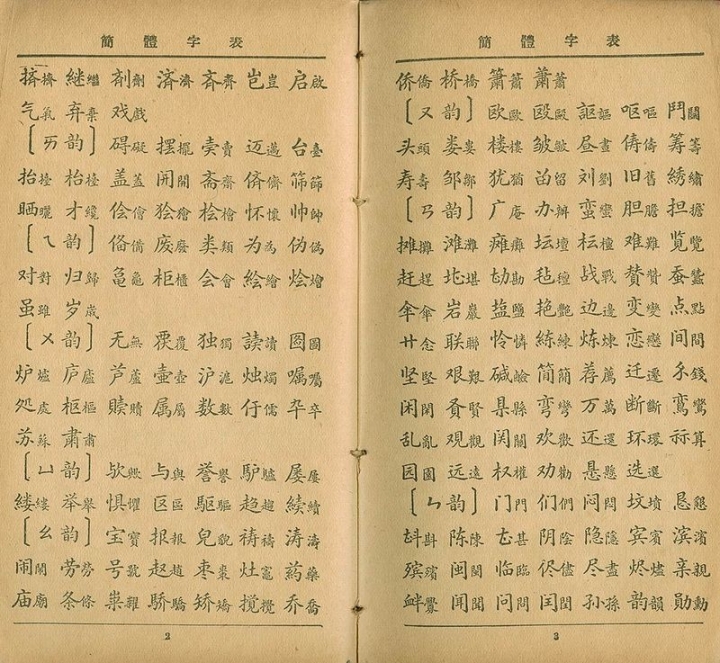 簡體字表
挤擠 继繼 剤劑 済濟 斉齊 岂豈 启啟
气氣 弃棄 戏戲
〔ㄞ韵〕 碍礙 摆擺 卖賣 迈邁 台臺
抬擡 枱檯 盖蓋 开開 斋齋 侪儕 筛篩
晒曬 才纔 侩儈 狯獪 桧檜 怀懷 帅帥
〔ㄟ韵〕 俻備 废廢 类類 为為 伪偽
对對 归歸 龟龜 柜櫃 会會 絵繪 烩燴
虽雖 岁歲
〔ㄨ韵〕 无無 覆 独獨 読讀 图圖
炉爐 庐廬 芦蘆 壶壺 沪滬 烛燭 嘱囑
処處 枢樞 赎贖 属屬 数數 儒 卆卒
苏蘇 肃肅
〔ㄩ韵〕 欤歟 与與 誉譽 馿驢 屡屢
缕縷 举舉 惧懼 区區 駆驅 趋趨 続續
〔ㄠ韵〕 宝寶 报報 皃貌 祷禱 涛濤
闹鬧 劳勞 号號 赵趙 枣棗 灶竈 药藥
庙廟 条條 粜糶 骄驕 矫矯 搅攪 乔喬
2
簡體字表
侨僑 桥橋 箫簫 萧蕭
〔ㄡ韵〕 欧歐 殴毆 謳 呕嘔 鬥鬭
头頭 娄婁 楼樓 皱皺 昼晝 俦儔 筹籌
寿壽 邹鄒 犹猶 畄留 刘劉 旧舊 綉繡
〔ㄢ韵〕 广庵 办辦 蛮蠻 胆膽 担擔
摊攤 滩灘 瘫癱 坛壇 枟檀 难難 览覽
赶趕 堪 勘 毡氈 战戰 赞贊 蚕蠶
伞傘 岩巖 盐鹽 艳艷 边邊 变變 点點
廿念 联聯 怜憐 練練 炼煉 恋戀 间間
坚堅 艰艱 碱鹼 简簡 荐薦 迁遷 錢
闲閑 贤賢 县縣 弯彎 万萬 断斷 鸾鸞
乱亂 观觀 関關 欢歡 还還 环環 祘算
园園 远遠 权權 劝勸 悬懸 选選
〔ㄣ韵〕 门門 们們 闷悶 坟墳 恳懇
斟 陈陳 甚 阴陰 隐隱 宾賓 滨濱
殡殯 闽閩 临臨 侭儘 尽盡 烬燼 亲親
衅釁 闻聞 问問 闰閏 孙孫 韵韻 勋勳
3